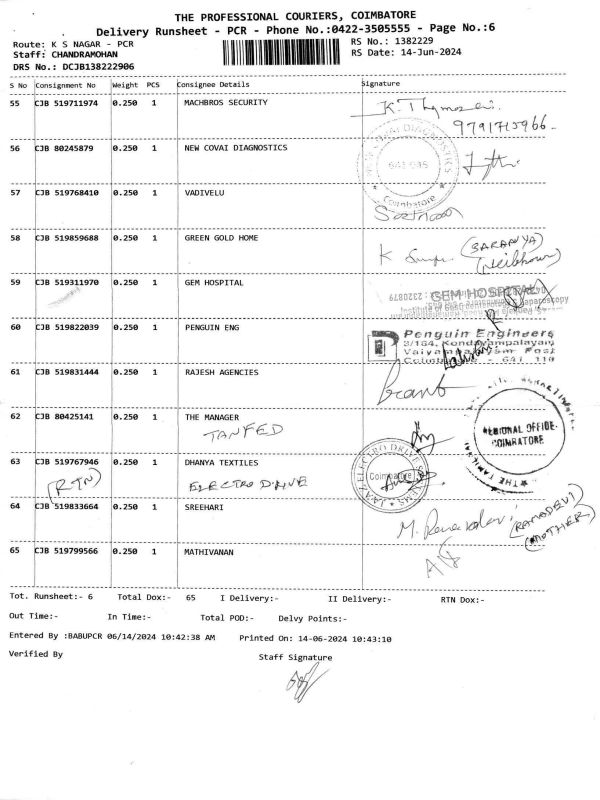 THE PROFESSIONAL COURIERS, COIMBATORE
Delivery Runsheet - PCR - Phone No.:0422-3505555 - Page No.:6
Route: K S NAGAR - PCR
RS No.: 1382229
Staff: CHANDRAMOHAN
RS Date: 14-Jun-2024
DRS No.: DCJB138222906
S No Consignment No Weight PCS Consignee Details Signature
55 CJB 519711974 0.250 1 MACHBROS SECURITY
56 CJB 80245879 0.250 1 NEW COVAI DIAGNOSTICS
Coimbatore
57 CJB 519768410 0.250 1 VADIVELU
58 CJB 519859688 0.250 1 GREEN GOLD HOME K
(SARANYA)
59 CJB 519311970 0.250 1 GEM HOSPITAL GEM HOSPITAL
60 CJB 519822039 0.250 1 PENGUIN ENG Penguin Engineers
61 CJB 519831444 0.250 1 RAJESH AGENCIES
62 CJB 80425141 0.250 1 THE MANAGER
TANFED
REGIONAL OFFICE
COIMBATORE
63 CJB 519767946 0.250 1 DHANYA TEXTILES
(RTN) ELECTRO DRIVE
Coimbatore
64 CJB 519833664 0.250 1 SREEHARI
M. (RAMADEVI)
(MOTHER)
65 CJB 519799566 0.250 1 MATHIVANAN
Tot. Runsheet:- 6 Total Dox:- 65 I Delivery:- II Delivery:- RTN Dox:-
Out Time:- In Time:- Total POD:- Delvy Points:-
Entered By :BABUPCR 06/14/2024 10:42:38 AM Printed On: 14-06-2024 10:43:10
Verified By Staff Signature